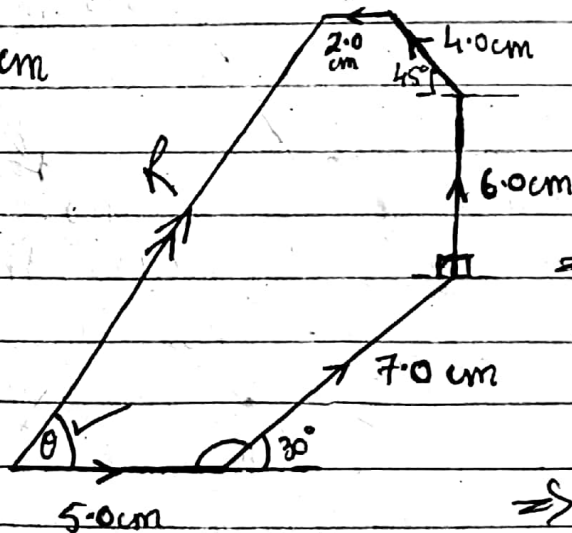 cm
2.0
cm
4.0cm
45°
R
6.0cm
=
7.0 cm
θ
30°
5.0cm
=>